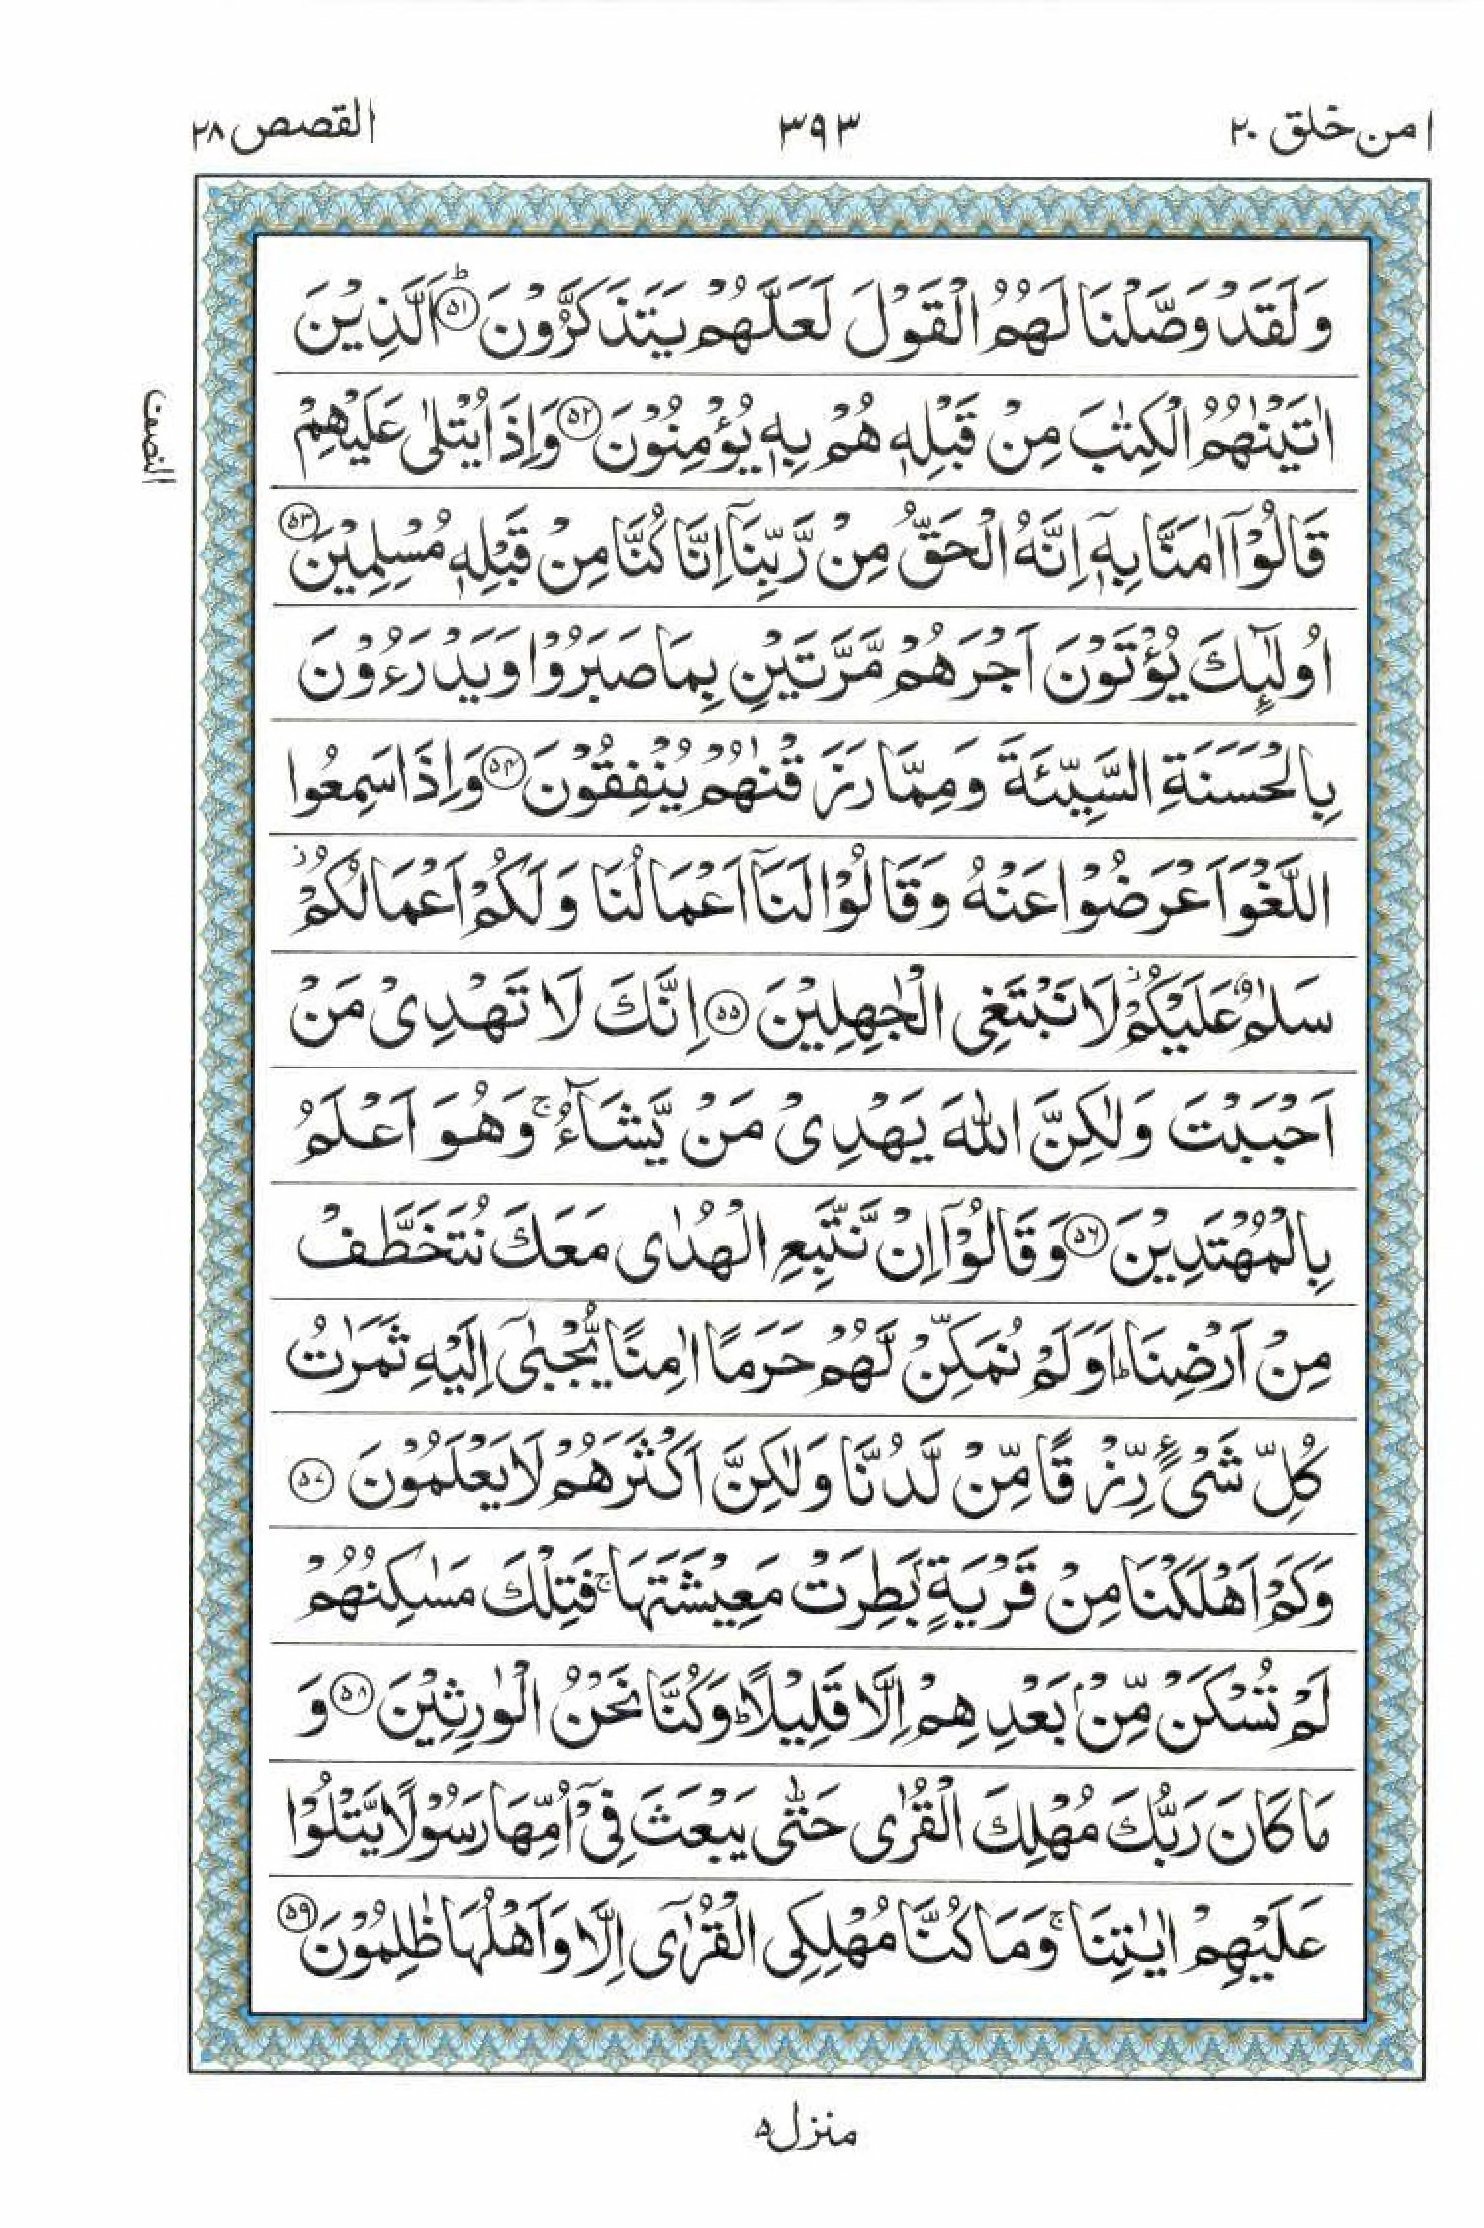 امن خلق ٢٠
٣٩٣
القصص ٢٨
وَلَقَدْ وَصَّلْنَا لَهُمُ الْقَوْلَ لَعَلَّهُمْ يَتَذَكَّرُوْنَ ؕ﴿۵۱﴾ اَلَّذِيْنَ
اٰتَيْنٰهُمُ الْكِتٰبَ مِنْ قَبْلِهٖ هُمْ بِهٖ يُؤْمِنُوْنَ ﴿۵۲﴾ وَاِذَا يُتْلٰى عَلَيْهِمْ
قَالُوْۤا اٰمَنَّا بِهٖۤ اِنَّهُ الْحَقُّ مِنْ رَّبِّنَاۤ اِنَّا كُنَّا مِنْ قَبْلِهٖ مُسْلِمِيْنَ ﴿۵۳﴾
اُولٰٓئِكَ يُؤْتَوْنَ اَجْرَهُمْ مَّرَّتَيْنِ بِمَا صَبَرُوْا وَيَدْرَءُوْنَ
بِالْحَسَنَةِ السَّيِّئَةَ وَمِمَّا رَزَقْنٰهُمْ يُنْفِقُوْنَ ﴿۵۴﴾ وَاِذَا سَمِعُوا
اللَّغْوَ اَعْرَضُوْا عَنْهُ وَقَالُوْا لَنَاۤ اَعْمَالُنَا وَلَكُمْ اَعْمَالُكُمْ ؗ
سَلٰمٌ عَلَيْكُمْ ؗ لَا نَبْتَغِى الْجٰهِلِيْنَ ﴿۵۵﴾ اِنَّكَ لَا تَهْدِىْ مَنْ
اَحْبَبْتَ وَلٰكِنَّ اللّٰهَ يَهْدِىْ مَنْ يَّشَآءُ ۚ وَهُوَ اَعْلَمُ
بِالْمُهْتَدِيْنَ ﴿۵۶﴾ وَقَالُوْۤا اِنْ نَّتَّبِعِ الْهُدٰى مَعَكَ نُتَخَطَّفْ
مِنْ اَرْضِنَا ؕ اَوَلَمْ نُمَكِّنْ لَّهُمْ حَرَمًا اٰمِنًا يُّجْبٰۤى اِلَيْهِ ثَمَرٰتُ
كُلِّ شَىْءٍ رِّزْقًا مِّنْ لَّدُنَّا وَلٰكِنَّ اَكْثَرَهُمْ لَا يَعْلَمُوْنَ ﴿۵۷﴾
وَكَمْ اَهْلَكْنَا مِنْ قَرْيَةٍۭ بَطِرَتْ مَعِيْشَتَهَا ۚ فَتِلْكَ مَسٰكِنُهُمْ
لَمْ تُسْكَنْ مِّنْۢ بَعْدِهِمْ اِلَّا قَلِيْلًا ؕ وَكُنَّا نَحْنُ الْوٰرِثِيْنَ ﴿۵۸﴾ وَ
مَا كَانَ رَبُّكَ مُهْلِكَ الْقُرٰى حَتّٰى يَبْعَثَ فِىْۤ اُمِّهَا رَسُوْلًا يَّتْلُوْا
عَلَيْهِمْ اٰيٰتِنَا ۚ وَمَا كُنَّا مُهْلِكِى الْقُرٰۤى اِلَّا وَاَهْلُهَا ظٰلِمُوْنَ ﴿۵۹﴾
النصف
منزل ۵